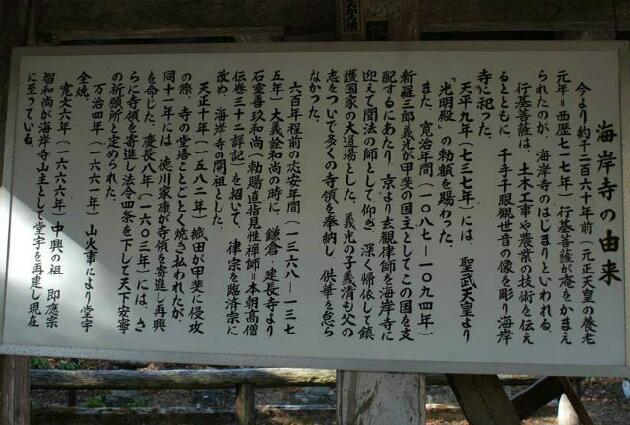 海岸寺の由来
今より約千二百六十年前(元正天皇の養老
元年=西歴七一七年)行基菩薩が庵をかまえ
られたのが、海岸寺のはじまりといわれる。
行基菩薩は、土木工事や農業の技術を伝え
るとともに、千手千眼観世音の像を彫り海岸
寺に祀った。
天平九年(七三七年)には、聖武天皇より
「光明殿」の勅額を賜わった。
また、寛治年間(一〇八七ー一〇九四年)
新羅三郎義光が甲斐の国主としてこの国を支
配するにあたり、京より玄観律師を海岸寺に
迎えて聞法の師として仰ぎ、深く帰依して鎮
護国家の大道場とした。義光の子義清も父の
志をついで多くの寺領を奉納し、供華を怠ら
なかった。
六百年程前の応安年間(一三六八ー一三七
五年)大義詮和尚の時に、鎌倉、建長寺より
石室善玖和尚(勅賜直指見性禅師=本朝高僧
伝巻三十二詳記)を招して、律宗を臨済宗に
改め、海岸寺の開祖とした。
天正十年(一五八二年)織田が甲斐に侵攻
の際、寺の堂塔ことごとく焼き払われたが、
同十一年には、徳川家康が寺領を寄進し再興
を命じた。慶長八年(一六〇三年)には、さ
らに寺領を寄進し法令四条を下して天下安寧
の祈願所と定められた。
万治四年(一六六一年)山火事により堂宇
全焼。
寛文六年(一六六六年)中興の祖、即應宗
智和尚が海岸寺山主として堂宇を再建し現在
に至っている。